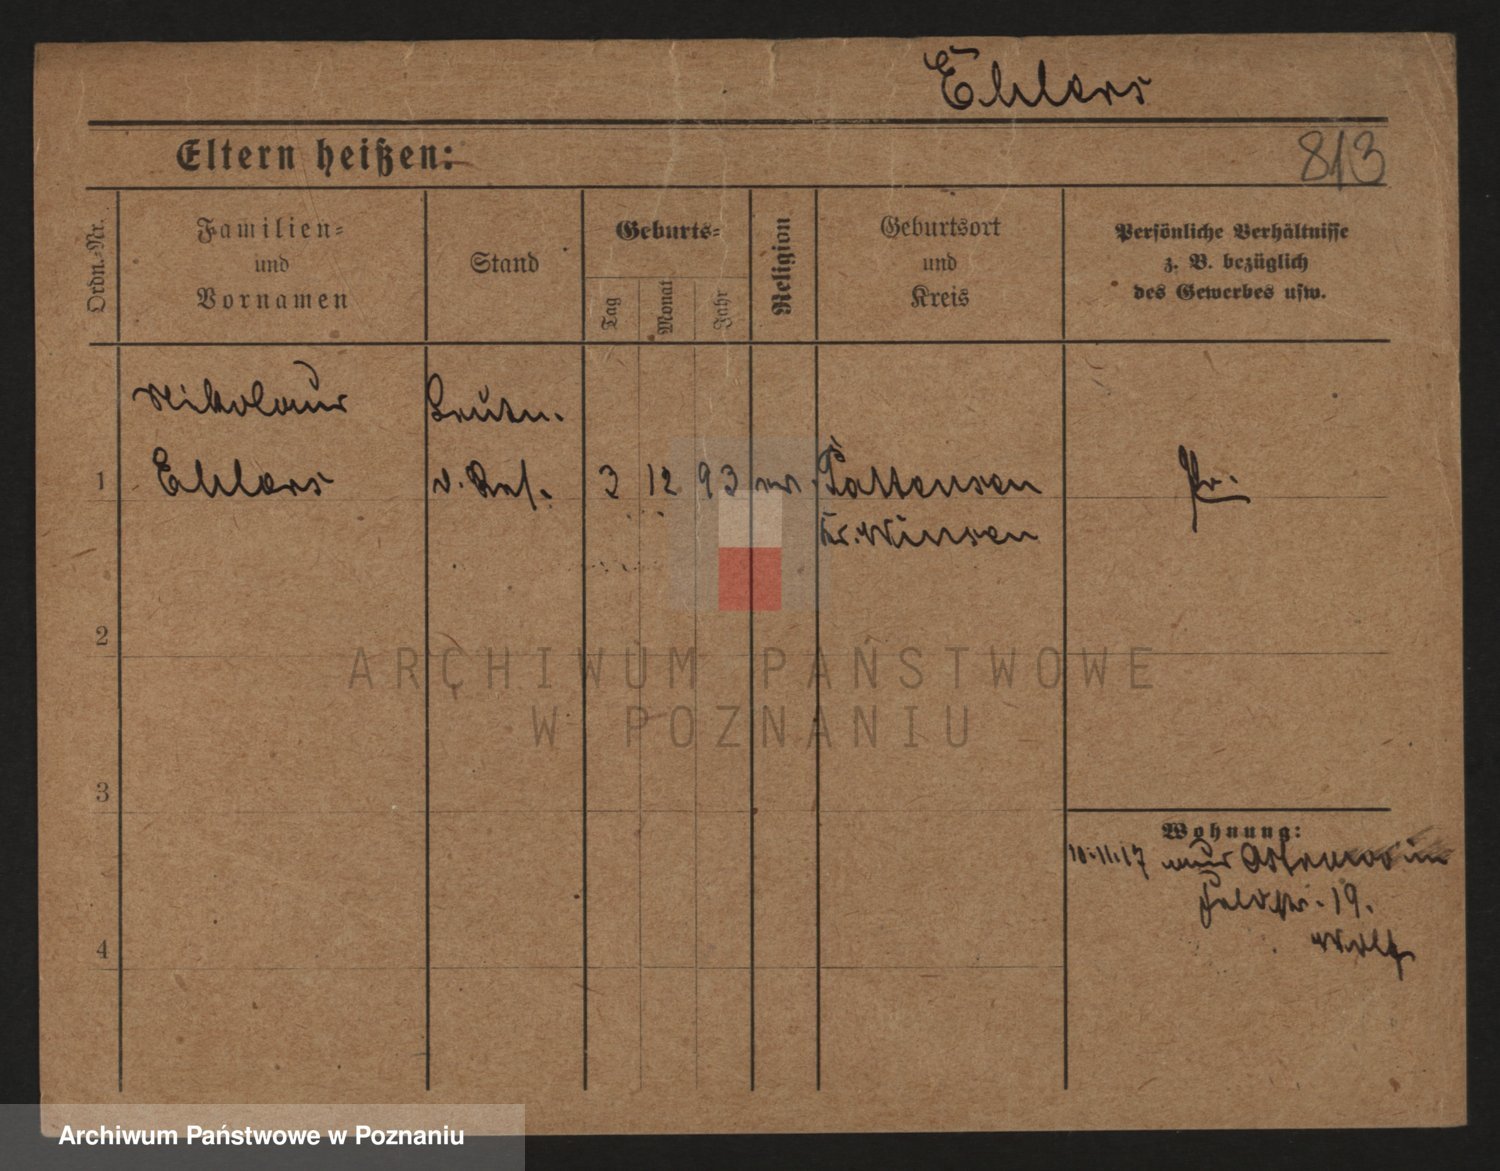 Ehlers
Eltern heißen:
813
Ordn.-Nr.
Familien-
und
Vornamen
Stand
Geburts-
Tag
Monat
Jahr
Religion
Geburtsort
und
Kreis
Persönliche Verhältnisse
z. B. bezüglich
des Gewerbes usw.
Nikolaus
Leutn.
1
Ehlers
d. Res.
3
12
93
ev.
Pattensen
Pr.
Kr. Winsen
2
3
4
Wohnung:
10.11.17
Feldstr. 19.
Wolf
ARCHIWUM PAŃSTWOWE
W POZNANIU
Archiwum Państwowe w Poznaniu